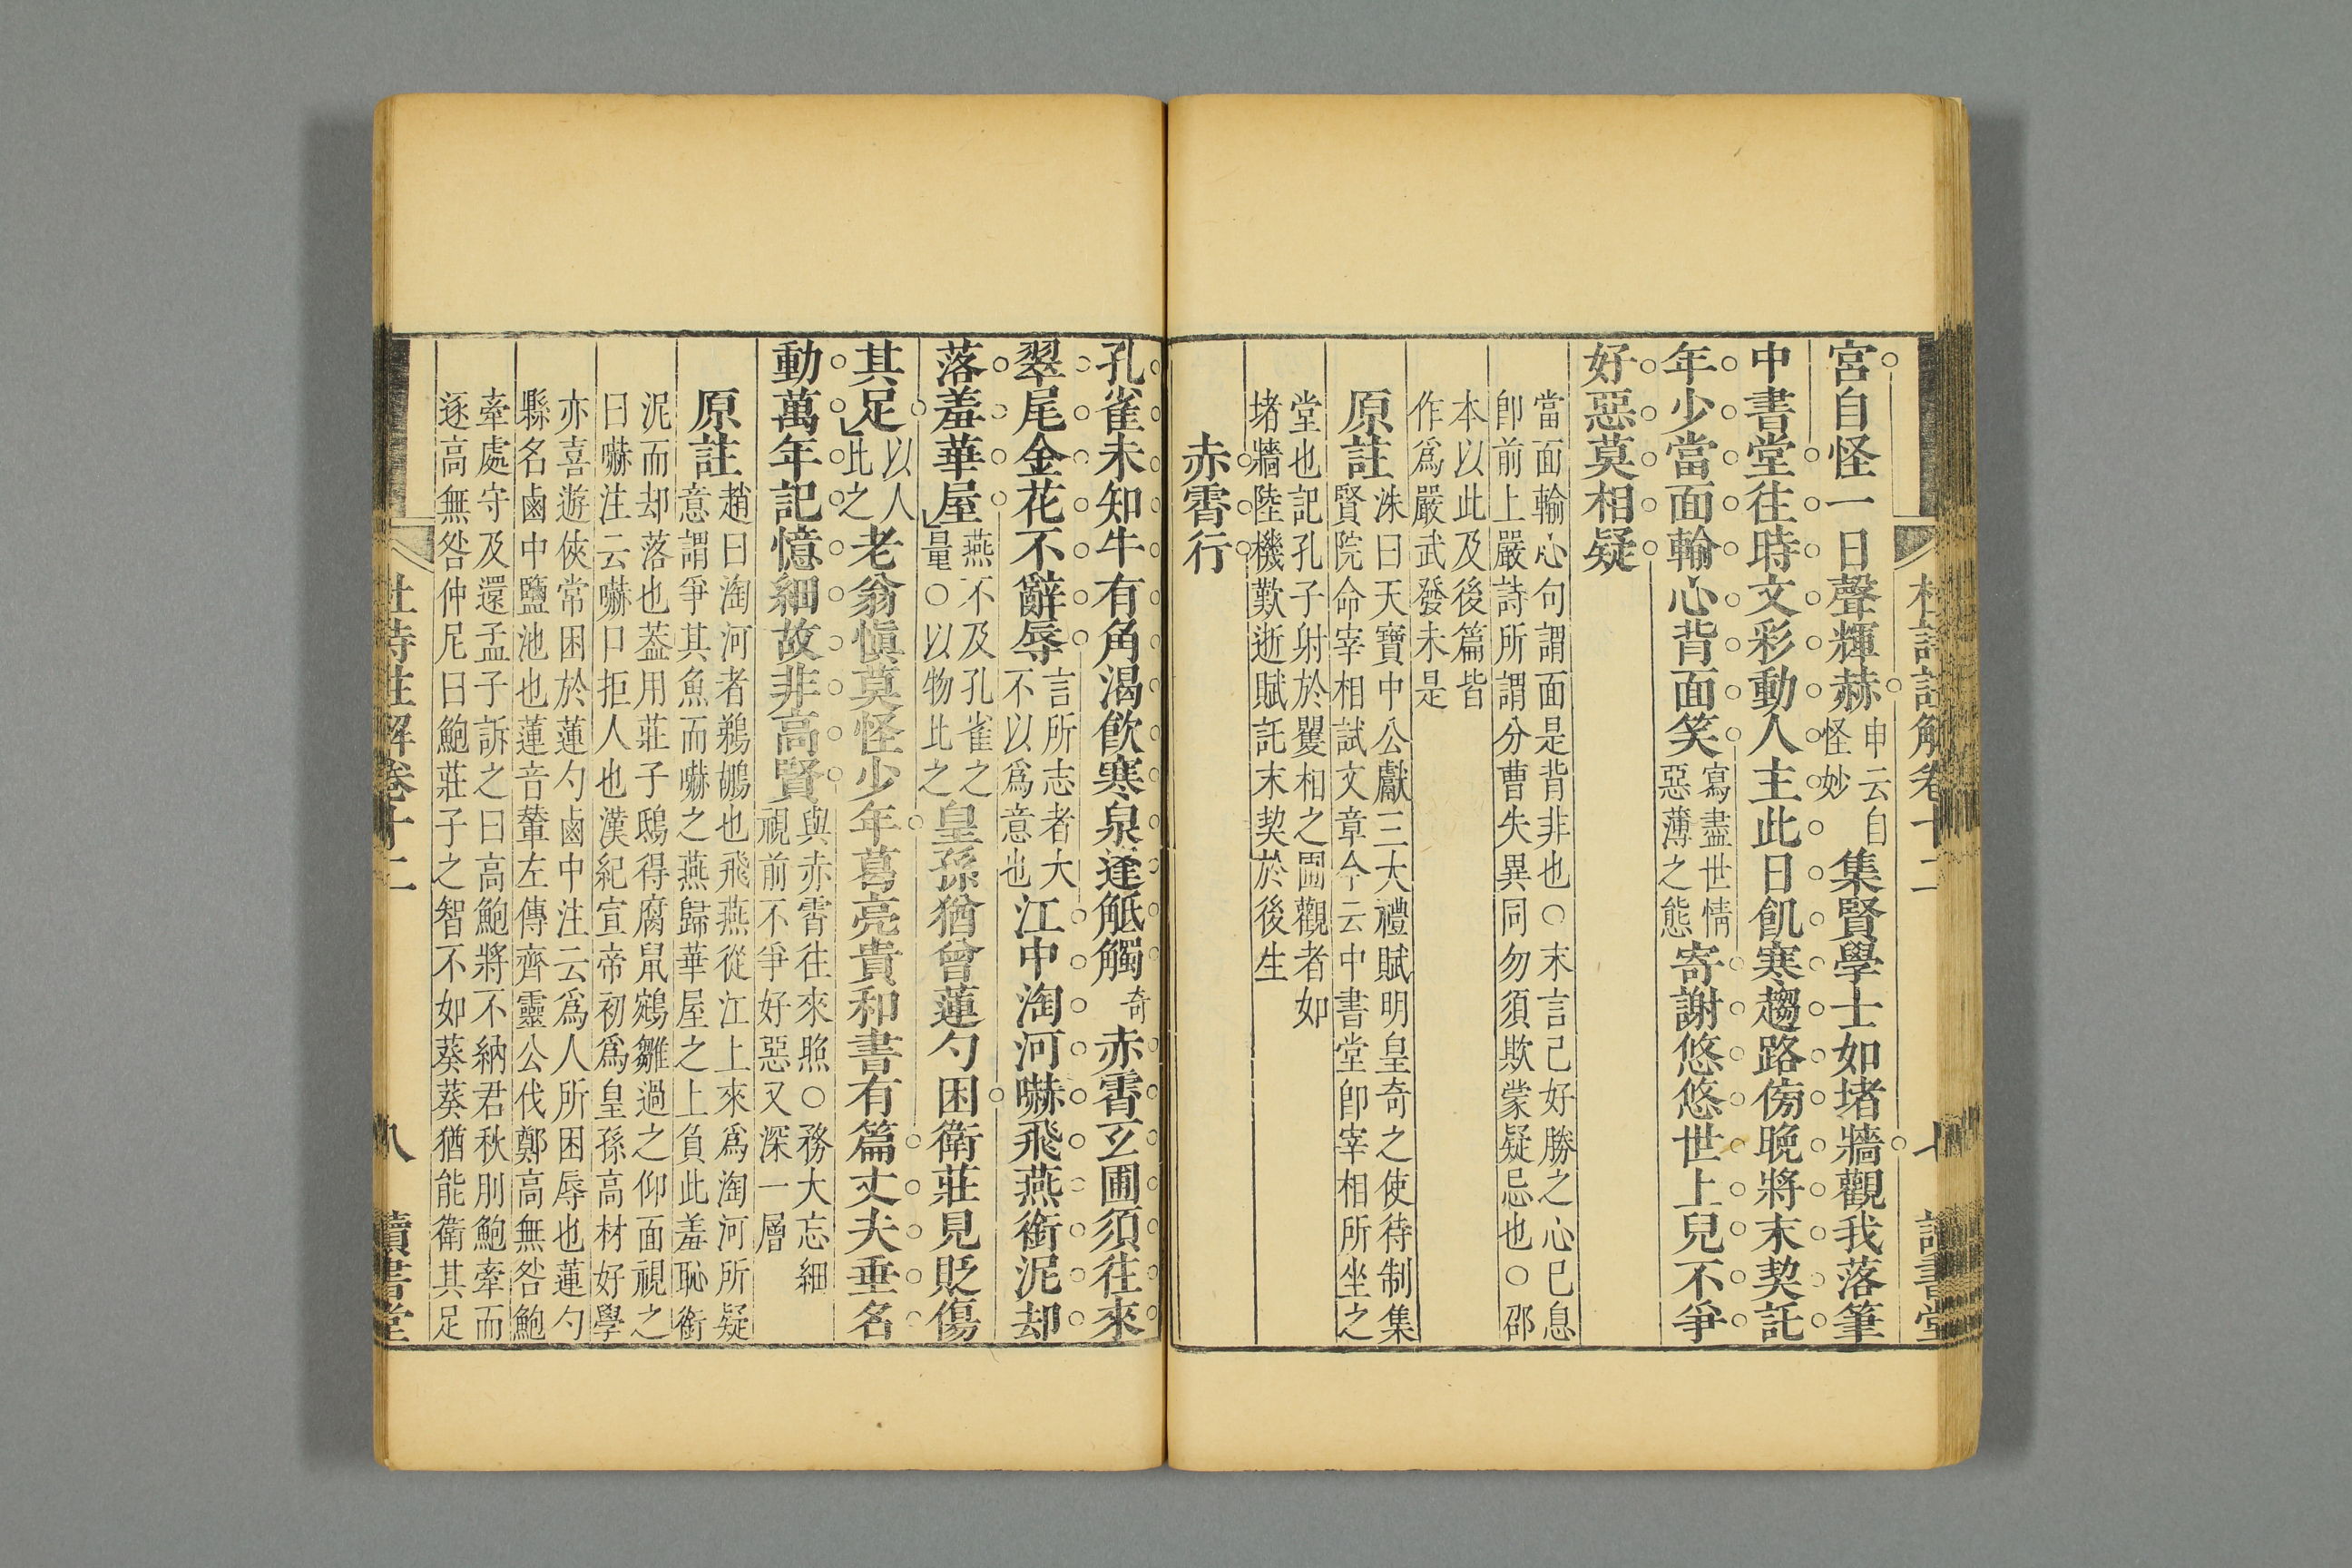 杜詩註解卷十二 七 讀書堂
宮自怪一日聲輝赫申云自怪妙集賢學士如堵牆觀我落筆
中書堂往時文彩動人主此日飢寒趨路傍晚將末契託
年少當面輸心背面笑寫盡世情惡薄之態寄謝悠悠世上兒不爭
好惡莫相疑
當面輸心句謂面是背非也○末言己好勝之心已息
卽前上嚴詩所謂分曹失異同勿須欺蒙疑忌也○邵
本以此及後篇皆
作爲嚴武發未是
原註洙曰天寶中公獻三大禮賦明皇奇之使待制集
賢院命宰相試文章今云中書堂卽宰相所坐之
堂也記孔子射於矍相之圃觀者如
堵牆陸機歎逝賦託末契於後生
赤霄行
孔雀未知牛有角渴飲寒泉逢觝觸奇赤霄玄圃須往來
翠尾金花不辭辱言所志者大不以爲意也江中淘河嚇飛燕銜泥却
落羞華屋燕不及孔雀之量○以物此之皇孫猶曾蓮勺困衛莊見貶傷
其足以人此之老翁慎莫怪少年葛亮貴和書有篇丈夫垂名
動萬年記憶細故非高賢與赤霄往來照○務大忘細視前不爭好惡又深一層
原註趙曰淘河者鵜鶘也飛燕從江上來爲淘河所疑
意謂爭其魚而嚇之燕歸華屋之上負此羞恥銜
泥而却落也葢用莊子鴟得腐鼠鵷雛過之仰面視之
曰嚇注云嚇口拒人也漢紀宣帝初爲皇孫高材好學
亦喜遊俠常困於蓮勺鹵中注云爲人所困辱也蓮勺
縣名鹵中鹽池也蓮音輦左傳齊靈公伐鄭高無咎鮑
牽處守及還孟子訴之曰高鮑將不納君秋刖鮑牽而
逐高無咎仲尼曰鮑莊子之智不如葵葵猶能衛其足
杜詩註解卷十二 八 讀書堂